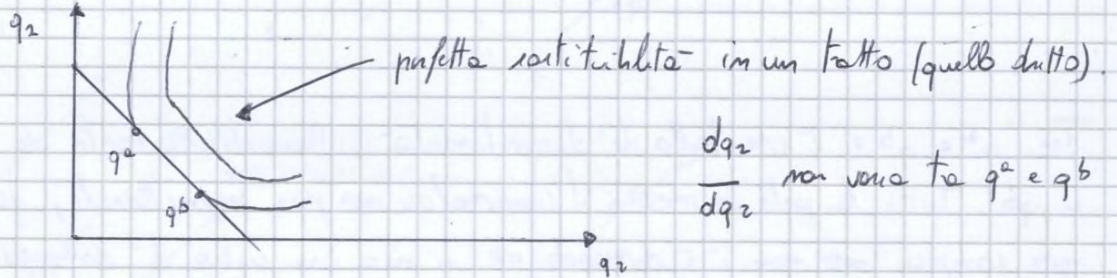 q₂
perfetta sostituibilità in un tratto (quello dritto).
qᵃ
qᵇ
dq₂
dq₂
non varia tra qᵃ e qᵇ
q₂